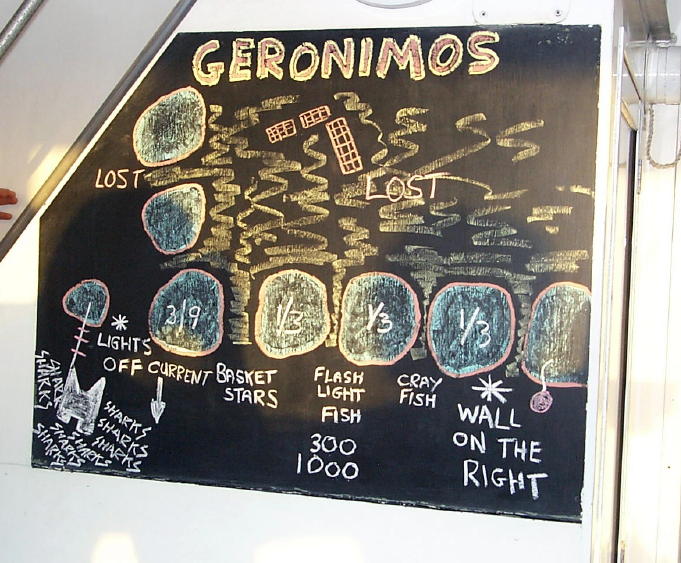 GERONIMOS
LOST
LOST
3/9
1/3
1/3
1/3
* LIGHTS
OFF
CURRENT
BASKET
STARS
FLASH
LIGHT
FISH
300
1000
CRAY
FISH
* WALL
ON THE
RIGHT
SHARKS
SHARKS
SHARKS
SHARKS
SHARKS
SHARKS
SHARKS
SHARKS